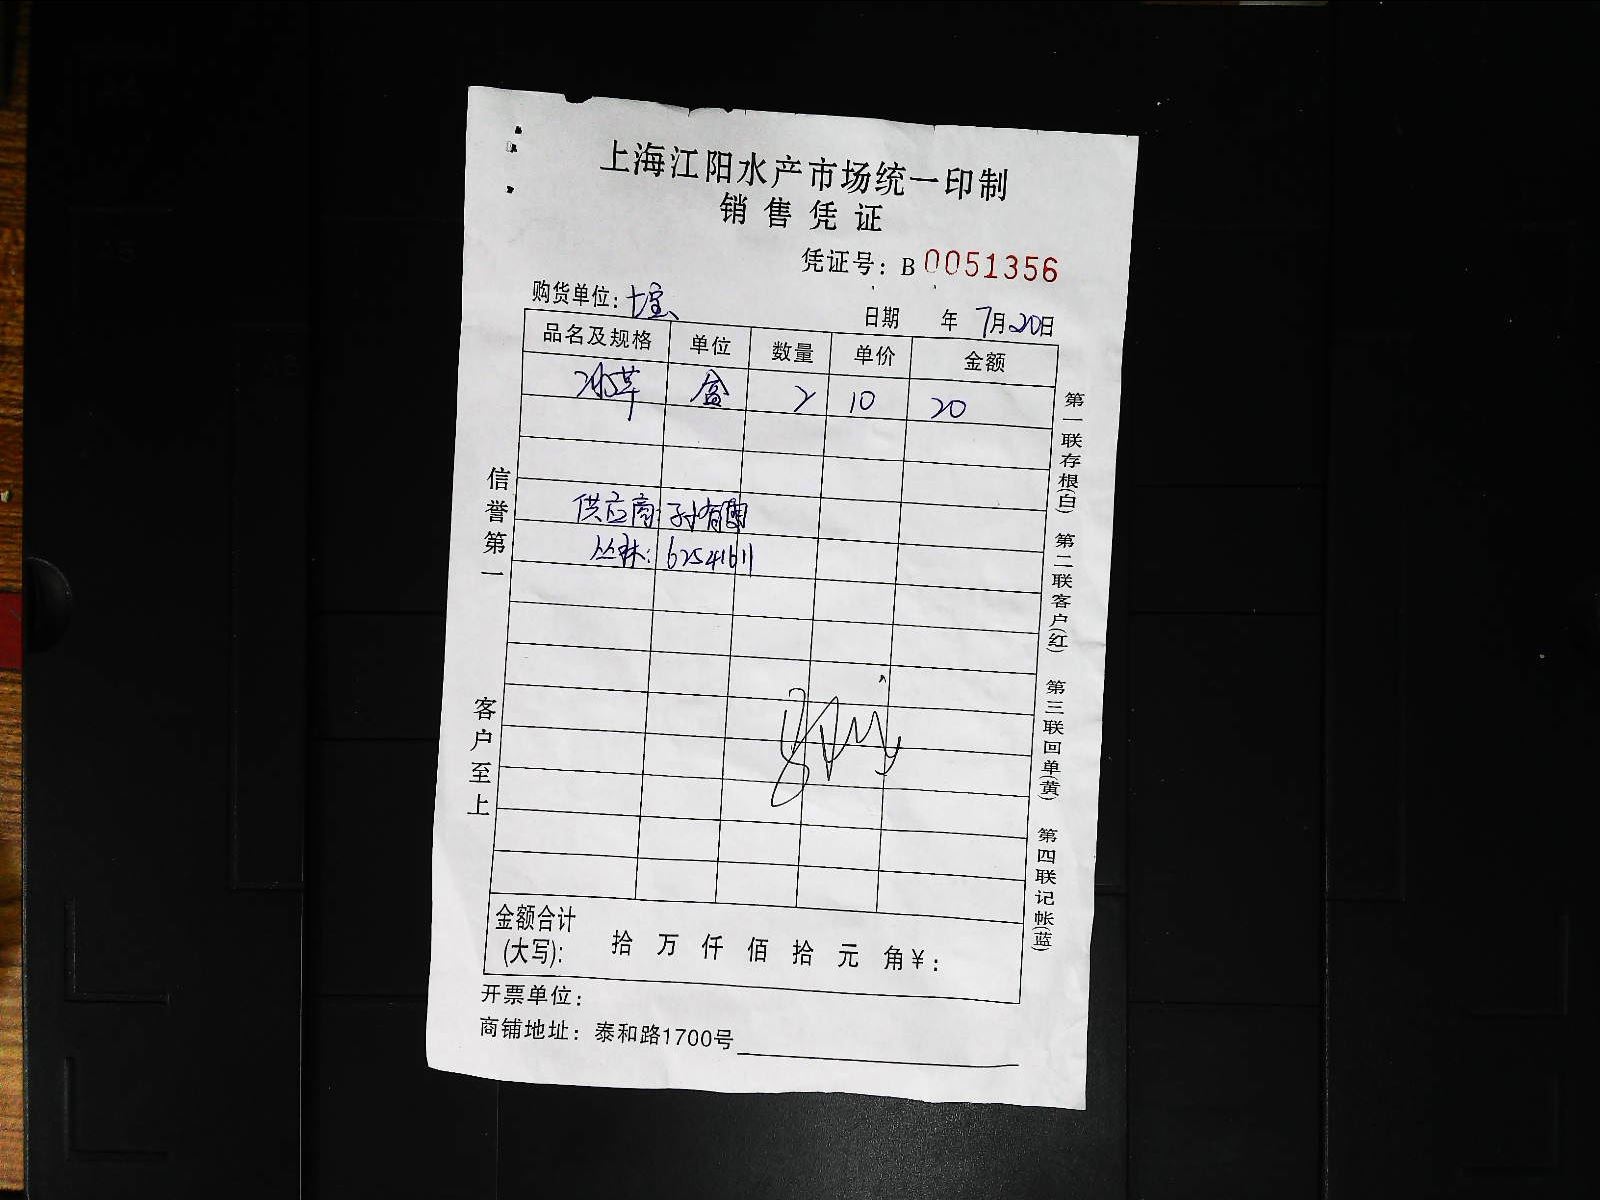 上海江阳水产市场统一印制
销售凭证
凭证号：B 0051356
购货单位：七宝
日期 年 7月20日
品名及规格 单位 数量 单价 金额
冰草 盒 2 10 20
供应商：孙有
丛林：62541611
信誉第一
客户至上
第一联存根(白) 第二联客户(红) 第三联回单(黄) 第四联记帐(蓝)
金额合计
(大写)： 拾 万 仟 佰 拾 元 角￥：
开票单位：
商铺地址：泰和路1700号